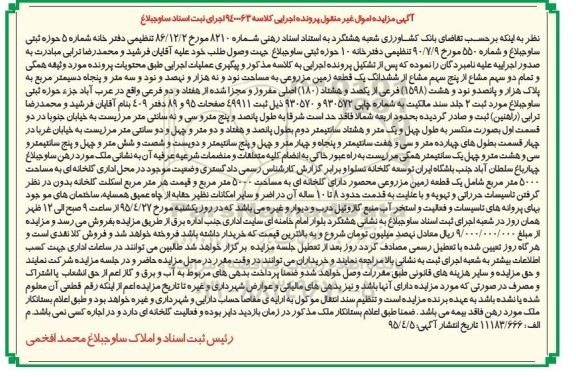 آگهی مزایده اموال غیر منقول پرونده اجرایی کلاسه ۹۴۰۰۰۶۳ اجرای ثبت اسناد ساوجبلاغ
نظر به اینکه برحسب تقاضای بانک کشاورزی شعبه هشتگرد به استناد اسناد رهنی شماره ۸۲۱۰ مورخ ۸۶/۱۲/۲ تنظیمی دفتر خانه شماره ۵ حوزه ثبتی
ساوجبلاغ و شماره ۵۵۰ مورخ ۹۰/۷/۹ تنظیمی دفترخانه ۱۰ حوزه ثبتی ساوجبلاغ جهت وصول طلب خود علیه آقایان فرشید و محمدرضا ترابی مبادرت به
صدور اجراییه علیه نامبردگان را نموده که پس از تشکیل پرونده اجرایی به کلاسه مذکور و پیگیری عملیات اجرایی طبق محتویات پرونده مورد وثیقه همگی
و تمام دو سهم مشاع از پنج سهم مشاع از ششدانگ یک قطعه زمین مزروعی به مساحت نود و نه هزار و نهصد و نود و سه متر و پنجاه دسیمتر مربع به
پلاک هزار و پانصد و نود و هشت (۱۵۹۸) فرعی از یکصد و هشتاد (۱۸۰) اصلی مفروز و مجزا شده از هفتاد و دو فرعی واقع در عرب آباد جزء حوزه ثبتی
ساوجبلاغ مورد ثبت ۲ جلد سند مالکیت به شماره چاپی ۹۳۰۵۷۲ و ۹۳۰۵۷۰ ذیل ثبت ۴۹۹۱۱ صفحات ۹۵ و ۸۹ دفتر ۴۰۹ بنام آقایان فرشید و محمدرضا
ترابی (راهنین) ثبت و صادر گردیده بحدود اربعه شمالا فاقد حد است شرقا به طول پانصد و پنج متر و سی و نه سانتی متر مرزیست به خیابان جنوبا در دو
قسمت اول بصورت منکسر به طول چهل و یک متر و هشتاد سانتیمتر دوم بطول پانصد و هفتاد و دو متر و چهل و دو سانتی متر مرزیست به خیابان غربا در
چهار قسمت بطول های چهارده متر و سی و هفت سانتیمتر و پنجاه و چهار متر و چهل و پنج سانتیمتر و دویست و شصت و شش متر و چهل و پنج سانتیمتر و
سی و هشت متر و چهل یک سانتیمتر همگی مرزیست به راه عبور خاکی به انضمام کلیه متعلقات و منضمات شرعیه عرفیه آن به نشانی ملک مورد رهن ساوجبلاغ
چهارباغ سلطان آباد جنب باشگاه ایران توسعه گلخانه تسلوا و برابر گزارش کارشناس رسمی دادگستری وضعیت موجود در محل دارای گلخانه ای به مساحت
۵۰۰۰ متر مربع شامل یک قطعه زمین مزروعی محصور دارای گلخانه ای به مساحت ۵۰۰۰ متر مربع و قیمت هر متر مربع اسکلت گلخانه بدون در نظر
گرفتن تاسیسات حرارتی و تهویه و با عنایت به قدمت حدود ۸ تا ۱۰ ساله آن در اضر و سایر امکانات نظیر حقابه از چاه عمیق همسایه، ساختمان های موجود
بهای پروانه های تاسیسات و فعالیت و استخر، آب منبع گازوئیل درب و دیوار و غیره می باشد که در روز یکشنبه مورخ ۹۵/۴/۲۷ از ساعت ۹ صبح الی ۱۲ ظهر
همان روز در شعبه اجرای ثبت اسناد ساوجبلاغ به نشانی هشتگرد بلوار امام خامنه ای سایت اداری جنب اداره برق از طریق مزایده بفروش می رسد و مزایده
از مبلغ ۹/۰۰۰/۰۰۰/۰۰۰ ریال معادل نهصد میلیون تومان شروع و به بالاترین قیمت که خریدار داشته باشد فروخته خواهد شد و فروش کلا نقدی است و
هر گاه روز تعیین شده با تعطیل رسمی مصادف گردد روز بعد از تعطیل جلسه مزایده برگزار خواهد شد طالبین می توانند در ساعات اداری جهت کسب
اطلاعات بیشتر به شعبه اجرای ثبت به نشانی بالا مراجعه نمایند و خریداران می توانند در وقت مقرر در محل مزایده حاضر و در جلسه مزایده شرکت نمایند
و حق مزایده و سایر هزینه های قانونی طبق مقررات وصول خواهد شد و ضمنا پرداخت بدهی های مربوط به آب و برق و گاز اعم از حق انشعاب یا اشتراک
و مصرف در صورتی که مورد مزایده دارای آنها باشد و نیز بدهی های مالیاتی و عوارض شهرداری و غیره تا تاریخ مزایده اعم از اینکه رقم قطعی آن معلوم
شده یا نشده باشد به عهده برنده مزایده است و تنظیم سند انتقال موکول به ارایه ی مفاصا حساب دارایی و شهرداری و غیره خواهد بود و طبق اعلام بستانکار
ملک مورد رهن فاقد بیمه می باشد. ضمنا طبق اعلام بستانکار ملک مذکور در زمان بازدید دایر بوده و فعالیت گلخانه ای دارد و در اجاره کسی نمی باشد. م
الف : ۱۱۱۸۳/۶۶۶ تاریخ انتشار آگهی: ۹۵/۴/۵
رئیس ثبت اسناد و املاک ساوجبلاغ محمد افخمی